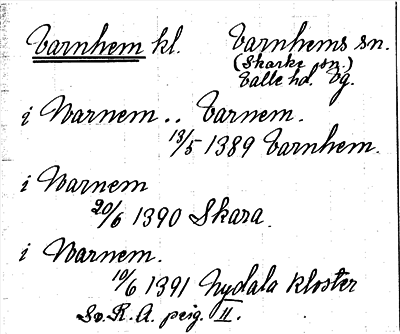 Varnhem kl. Varnhems sn.
(Skarke sn.)
Valle hd. Vg.
i Warnem .. Varnem.
13/5 1389 Varnhem.
i Warnem
20/6 1390 Skara.
i Warnem.
10/6 1391 Nydala kloster
Sv. R. A. perg. II.